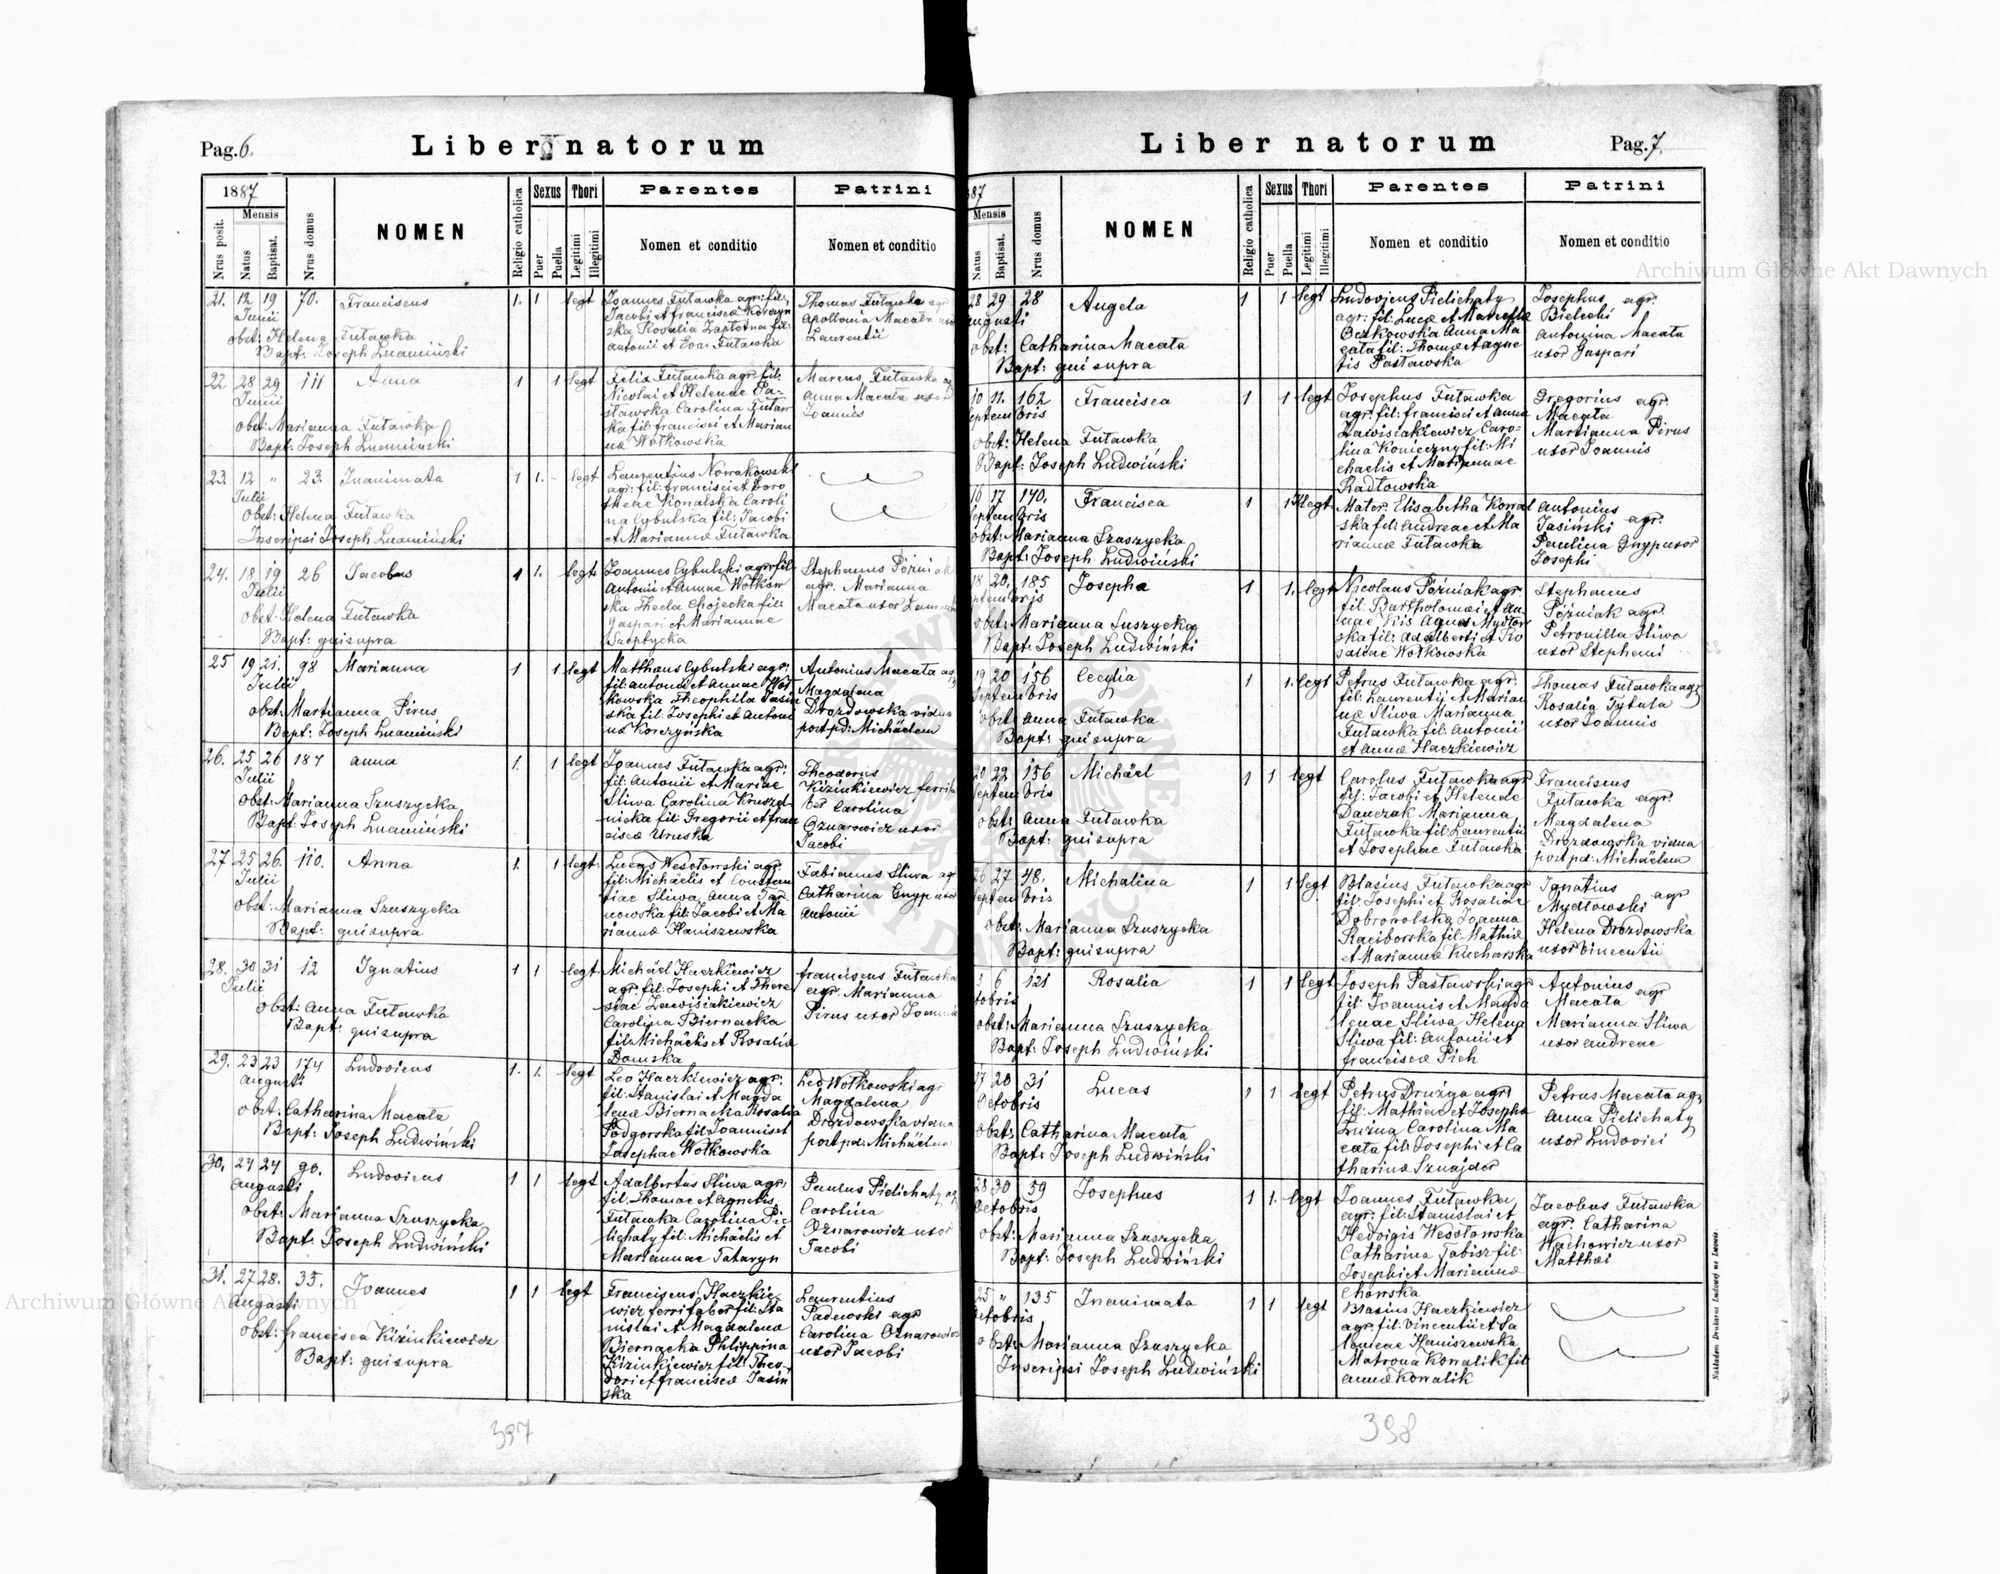 Pag. 6.
Liber natorum
1887
Nrus posit.
Mensis
Natus
Baptisat.
Nrus domus
NOMEN
Religio catholica
Sexus
Puer
Puella
Thori
Legitimi
Illegitimi
Parentes
Nomen et conditio
Patrini
Nomen et conditio
21. 12 19 70. Franciscus 1. 1 legt
Junii
obst: Helena Futawka
Bapt: Joseph
Joannes Futawka agr: fil:
Jacobi et Francisca
Rosalia fil:
Antonii et Eva Futawka
Thomas Futawka agr
Apollonia Macata
Laurentii
22 28 29 111 Anna 1 1 legt
Junii
obst: Marianna Futawka
Bapt: Joseph
Felix Futawka agr: fil:
Nicolai et Helenae Pa-
stawska Carolina Futaw
ka fil: Francisci et Marian
na Wotkowska
Marcus Futawska
Anna Macata uxor
Joannis
23. 12 " 23. Inanimata 1 1. - legt
Julii
obst: Helena Futawka
Inscripsi Joseph
Laurentius Nowakowski
agr: fil: Francisci et Doro
theae Kowalska Caroli
na Cybulska fil: Jacobi
et Marianna Futawka
24. 18 19 26 Jacobus 1 1. legt
Julii
obst: Helena Futawka
Bapt: qui supra
Joannes Cybulski agr fil
Antonii et Annae Wotkow
ska Thecla Chojecka fil:
Gaspari et Mariannae
Szeptycka
Stephanus Późniak
agr. Marianna
Macata uxor
25 19 21. 98 Marianna 1 1 legt
Julii
obst: Marianna Pirus
Bapt: Joseph
Matthaeus Cybulski agr:
fil: Antonii et Annae Wot
kowska Theophila Jasin
ska fil: Josephi et Antoni
na Korczyńska
Antonius Macata
Magdalena
Drozdowska vidua
post pd: Michäelem
26. 25 26 187 Anna 1. 1 legt
Julii
obst: Marianna Szuszycka
Bapt: Joseph
Joannes Futawka agr:
fil: Antonii et Mariae
Sliwa Carolina
fil: Gregorii et Fran
cisca
Theodorus
Kizinkiewicz ferrifa
ber Carolina
Oznarowicz uxor
Jacobi
27 25 26. 110. Anna 1. 1 legt
Julii
obst: Marianna Szuszycka
Bapt: qui supra
Lucas Wesołowski agr:
fil: Michäelis et Constan
tiae Sliwa Anna Tar
nowska fil: Jacobi et Ma
rianna Haniszewska
Fabianus Sliwa agr
Catharina Gnyp uxor
Antonii
28. 30 31 12 Ignatius 1 1 legt
Julii
obst: Anna Futawka
Bapt: qui supra
Michäel Haczkiewicz
agr: fil: Josephi et There
siae Zawisiakiewicz
Carolina Biernacka
fil: Michäelis et Rosalia
Domska
Franciscus Futawska
agr. Marianna
Pirus uxor Joannis
29. 23 23 174 Ludovicus 1. 1. legt
Augusti
obst: Catharina Macata
Bapt: Joseph Ludwiński
Leo Haczkiewicz agr:
fil: Stanislai et Magda
lena Biernacka Rosalia
Podgorska fil: Joannis et
Josephae Wotkowska
Leo Wotkowski agr
Magdalena
Drozdowska vidua
post pd: Michäelem
30. 24 24 90. Ludovicus 1 1 legt
Augusti
obst: Marianna Szuszycka
Bapt: Joseph Ludwiński
Adalbertus Sliwa agr:
fil: Thomae et Agnetis
Futawka Carolina Pie
lichaty fil: Michäelis et
Mariannae Tataryn
Paulus Pielichaty
Carolina
Oznarowicz uxor
Jacobi
31. 27 28. 35. Joannes 1 1 legt
Augusti
obst: Francisca Kizinkiewicz
Bapt: qui supra
Franciscus Haczkie
wicz ferrifaber fil: Sta
nislai et Magdalena
Biernacka Phlippina
Kizinkiewicz fil: Theo-
dori et Francisca Jasiń
ska
Laurentius
Padewski agr
Carolina Oznarowicz
uxor Jacobi
397
Liber natorum
Pag. 7.
87
Mensis
Natus
Baptisat.
Nrus domus
NOMEN
Religio catholica
Sexus
Puer
Puella
Thori
Legitimi
Illegitimi
Parentes
Nomen et conditio
Patrini
Nomen et conditio
28 29 28 Angela 1 1 legt
Augusti
obst: Catharina Macata
Bapt: qui supra
Ludovicus Pielichaty
agr: fil: Luca et Marcella
Oczkowska Anna Ma
cata fil: Thoma et Agne
tis Pastawska
Josephus agr.
Bielecki
Antonina Macata
uxor Gaspari
10 11. 162 Francisca 1 1 legt
Septembris
obst: Helena Futawka
Bapt: Joseph Ludwiński
Josephus Futawka
agr: fil: Francisci et Anna
Zawisiakiewicz Caro-
lina Konieczny fil: Mi
chaelis et Mariannae
Radłowska
Gregorius agr.
Macata
Marianna Pirus
uxor Joannis
16 17 140. Francisca 1 1 Illegt
Septembris
obst: Marianna Szuszycka
Bapt: Joseph Ludwiński
Mater: Elisabetha Kowal
ska fil: Andreae et Ma
rianna Futawka
Antonius
Jasiński agr.
Paulina Gnyp uxor
Josephi
18 20. 185 Josepha 1 1. legt
Septembris
obst: Marianna Suszycka
Bapt: Joseph Ludwiński
Nicolaus Późniak agr
fil: Bartholomaei et An
nae Kis Agnes Mydłow
ska fil: Adalberti et Ro
saliae Wotkowska
Stephanus
Późniak agr.
Petronilla Sliwa
uxor Stephani
19 20 156 Cecylia 1 1. legt
Septembris
obst: Anna Futawka
Bapt: qui supra
Petrus Futawka agr.
fil: Laurentii et Marian
na Sliwa Marianna
Futawka fil: Antonii
et Anna Haczkiewicz
Thomas Futawka agr
Rosalia Tytuła
uxor Joannis
20 22 156 Michäel 1 1 legt
Septembris
obst: Anna Futawka
Bapt: qui supra
Carolus Futawka agr
fil: Jacobi et Helenae
Danczak Marianna
Futawka fil: Laurentii
et Josephae Futawska
Franciscus
Futawka agr.
Magdalena
Drozdowska vidua
post pd: Michäelem
26 27 48. Michalina 1 1 legt
Septembris
obst: Marianna Szuszycka
Bapt: qui supra
Blasius Futawka agr
fil: Josephi et Rosalia
Dobrowolska Joanna
Raciborska fil: Mathia
et Marianna Kucharska
Ignatius
Mydłowski agr
Helena Drozdowska
uxor Vincentii
5 6 121 Rosalia 1 1 legt
Octobris
obst: Marianna Szuszycka
Bapt: Joseph Ludwiński
Joseph Pastawski agr
fil: Joannis et Magda
lenae Sliwa Helena
Sliwa fil: Antonii et
Francisca Pich
Antonius
Macata agr
Marianna Sliwa
uxor Andreae
17 20 31 Lucas 1 1 legt
Octobris
obst: Catharina Macata
Bapt: Joseph Ludwiński
Petrus Drużga agr
fil: Mathiae et Josepha
Carolina Ma
cata fil: Josephi et Ca
tharina Sznajder
Petrus Macata agr
Anna Pielichaty
uxor Ludovici
28 30 59 Josephus 1 1. legt
Octobris
obst: Marianna Szuszycka
Bapt: Joseph Ludwiński
Joannes Futawka
agr: fil: Stanislai et
Hedvigis Wesołowska
Catharina Tabisz fil:
Josephi et Marianna
Chowska
Jacobus Futawka
agr. Catharina
Wachowicz uxor
Matthäi
25 " 135 Inanimata 1 1 legt
Octobris
obst: Marianna Szuszycka
Inscripsi Joseph Ludwiński
Blasius Haczkiewicz
agr: fil: Vincentii et Sa
lomeae Haniszewska
Matrona Kowalik fil
Anna Kowalik
398
Nakładem Drukarni Ludowej we Lwowie.
Archiwum Główne Akt Dawnych
Archiwum Główne Akt Dawnych